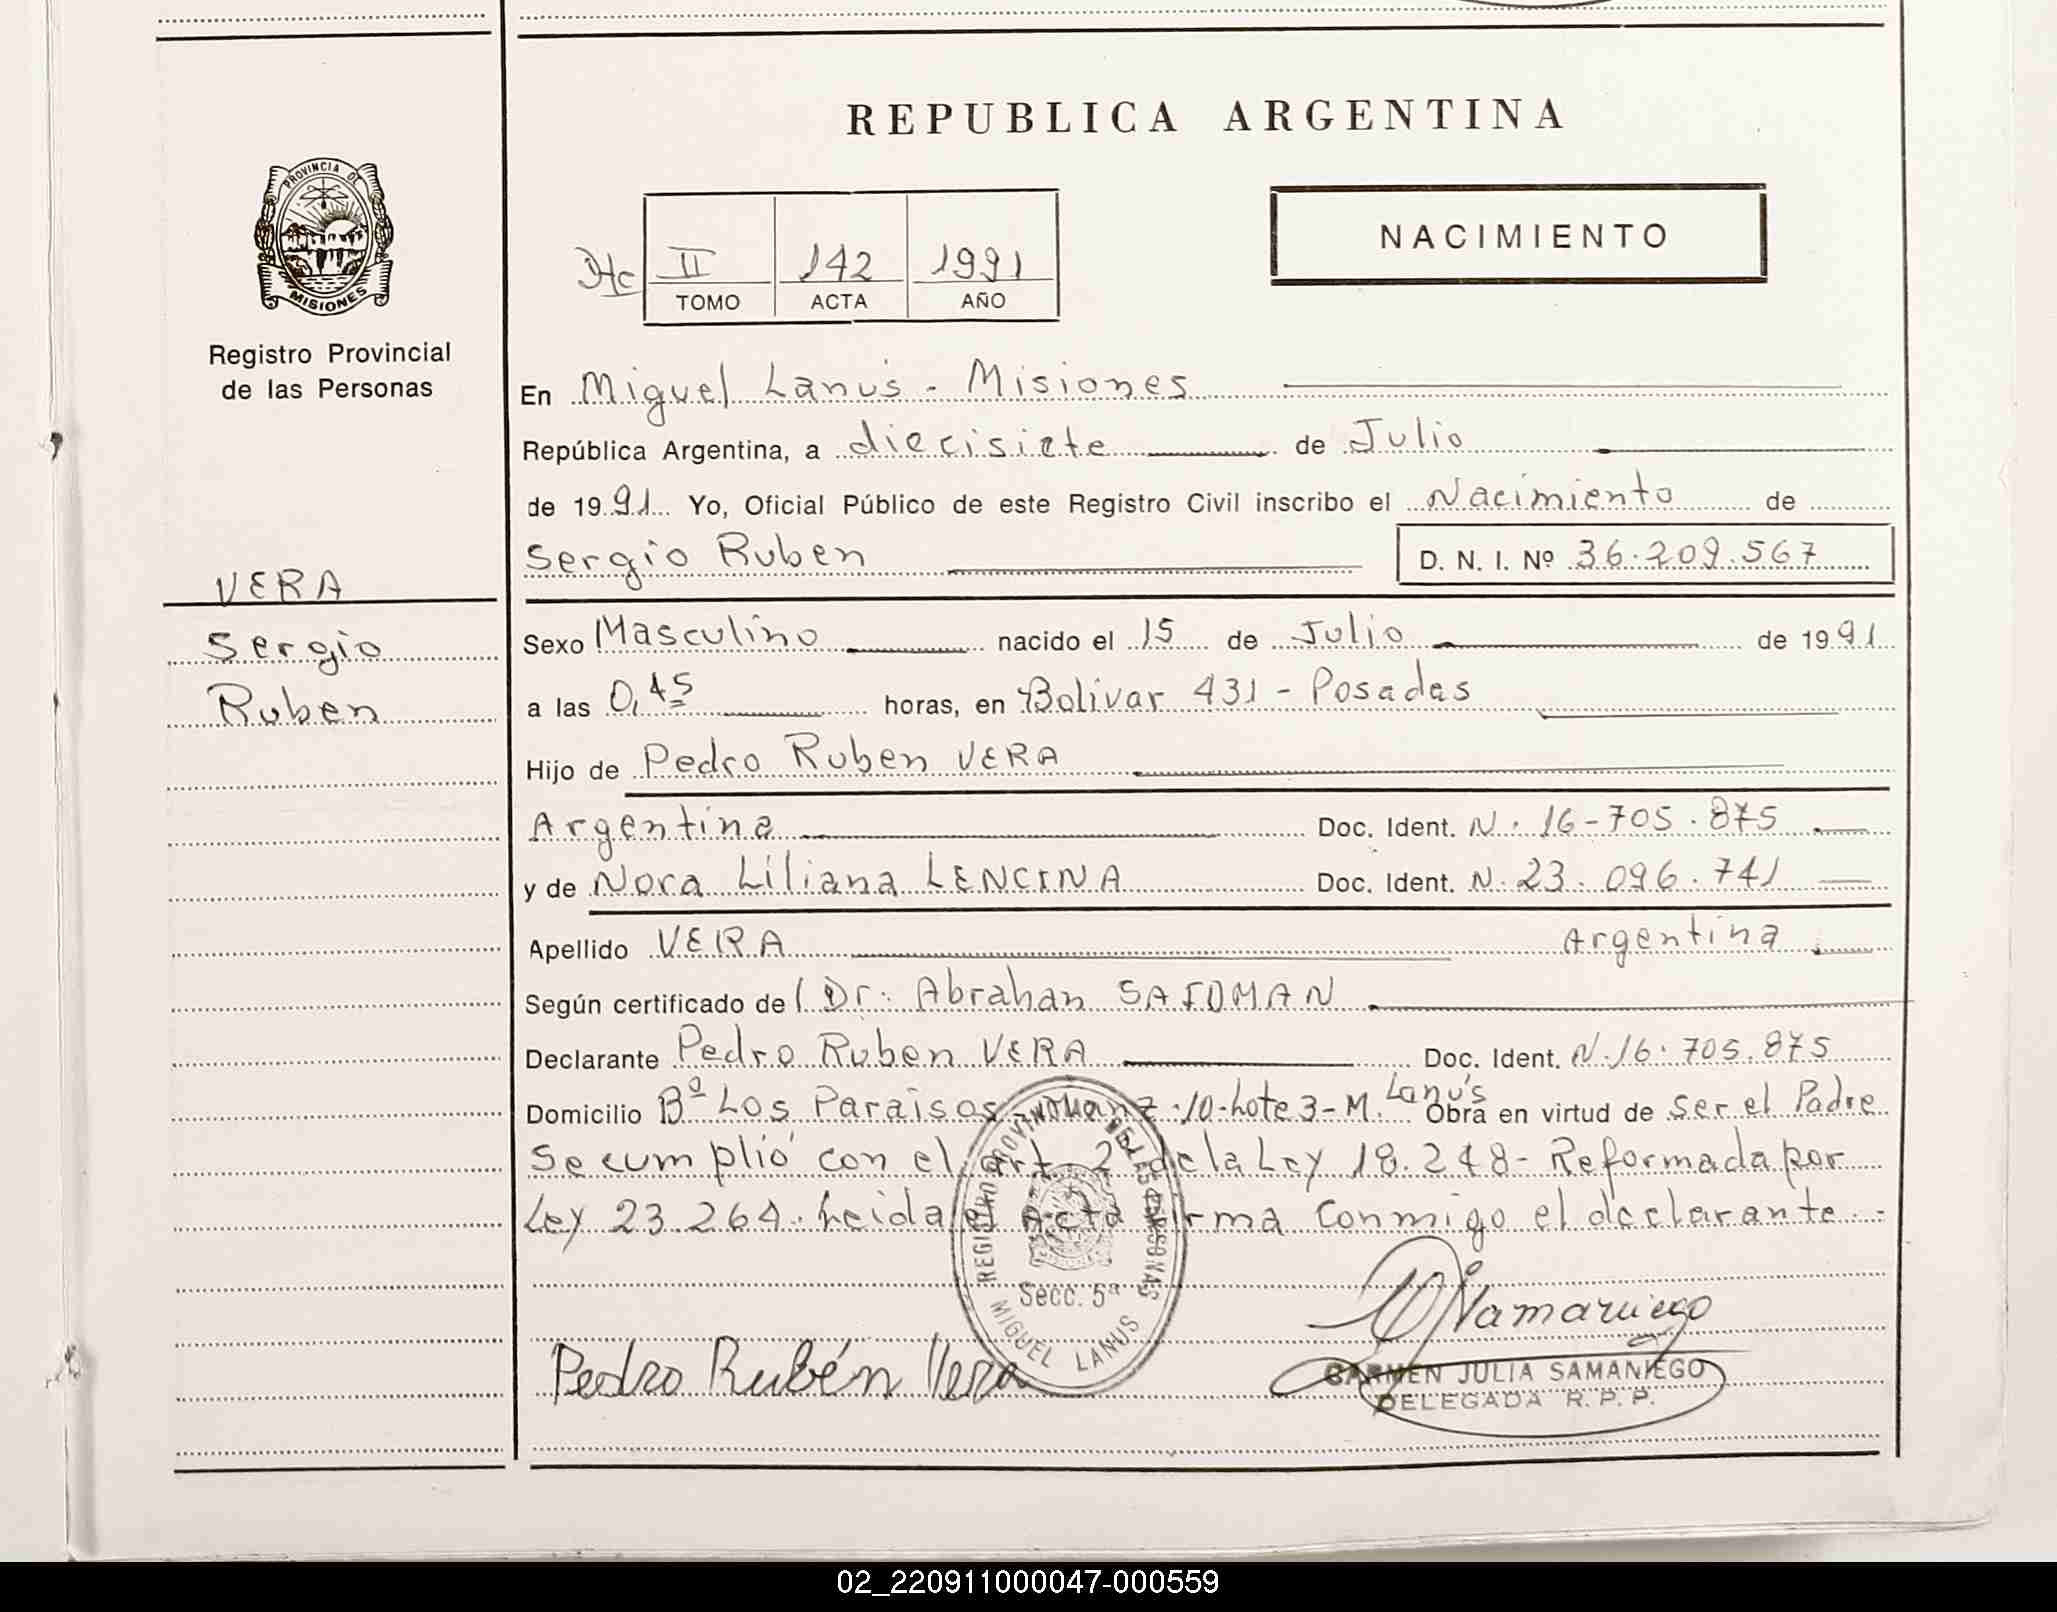 REPUBLICA ARGENTINA
PROVINCIA DE
MISIONES
Registro Provincial
de las Personas
NACIMIENTO
II 142 1991
TOMO ACTA AÑO
En Miguel Lanús - Misiones
República Argentina, a diecisiete de Julio
de 1991 Yo, Oficial Público de este Registro Civil inscribo el Nacimiento de
Sergio Ruben D. N. I. Nº 36.209.567
VERA
Sergio
Ruben
Sexo Masculino nacido el 15 de Julio de 1991
a las 0,45 horas, en Bolivar 431 - Posadas
Hijo de Pedro Ruben VERA
Argentina Doc. Ident. N. 16-705.875
y de Nora Liliana LENCINA Doc. Ident. N. 23.096.741
Apellido VERA Argentina
Según certificado del Dr: Abrahan
Declarante Pedro Ruben VERA Doc. Ident. N.16.705.875
Domicilio Bº Los Paraisos - Manz.10-Lote 3-M. Lanús Obra en virtud de ser el Padre
Se cumplió con el art. 2º de la Ley 18.248- Reformada por
Ley 23.264. Leida el Acta firma conmigo el declarante.-
REGISTRO PROVINCIAL DE LAS PERSONAS
Secc. 5ª
MIGUEL LANUS
Pedro Rubén Vera
Samaniego
CARMEN JULIA SAMANIEGO
DELEGADA R. P. P.
02_220911000047-000559